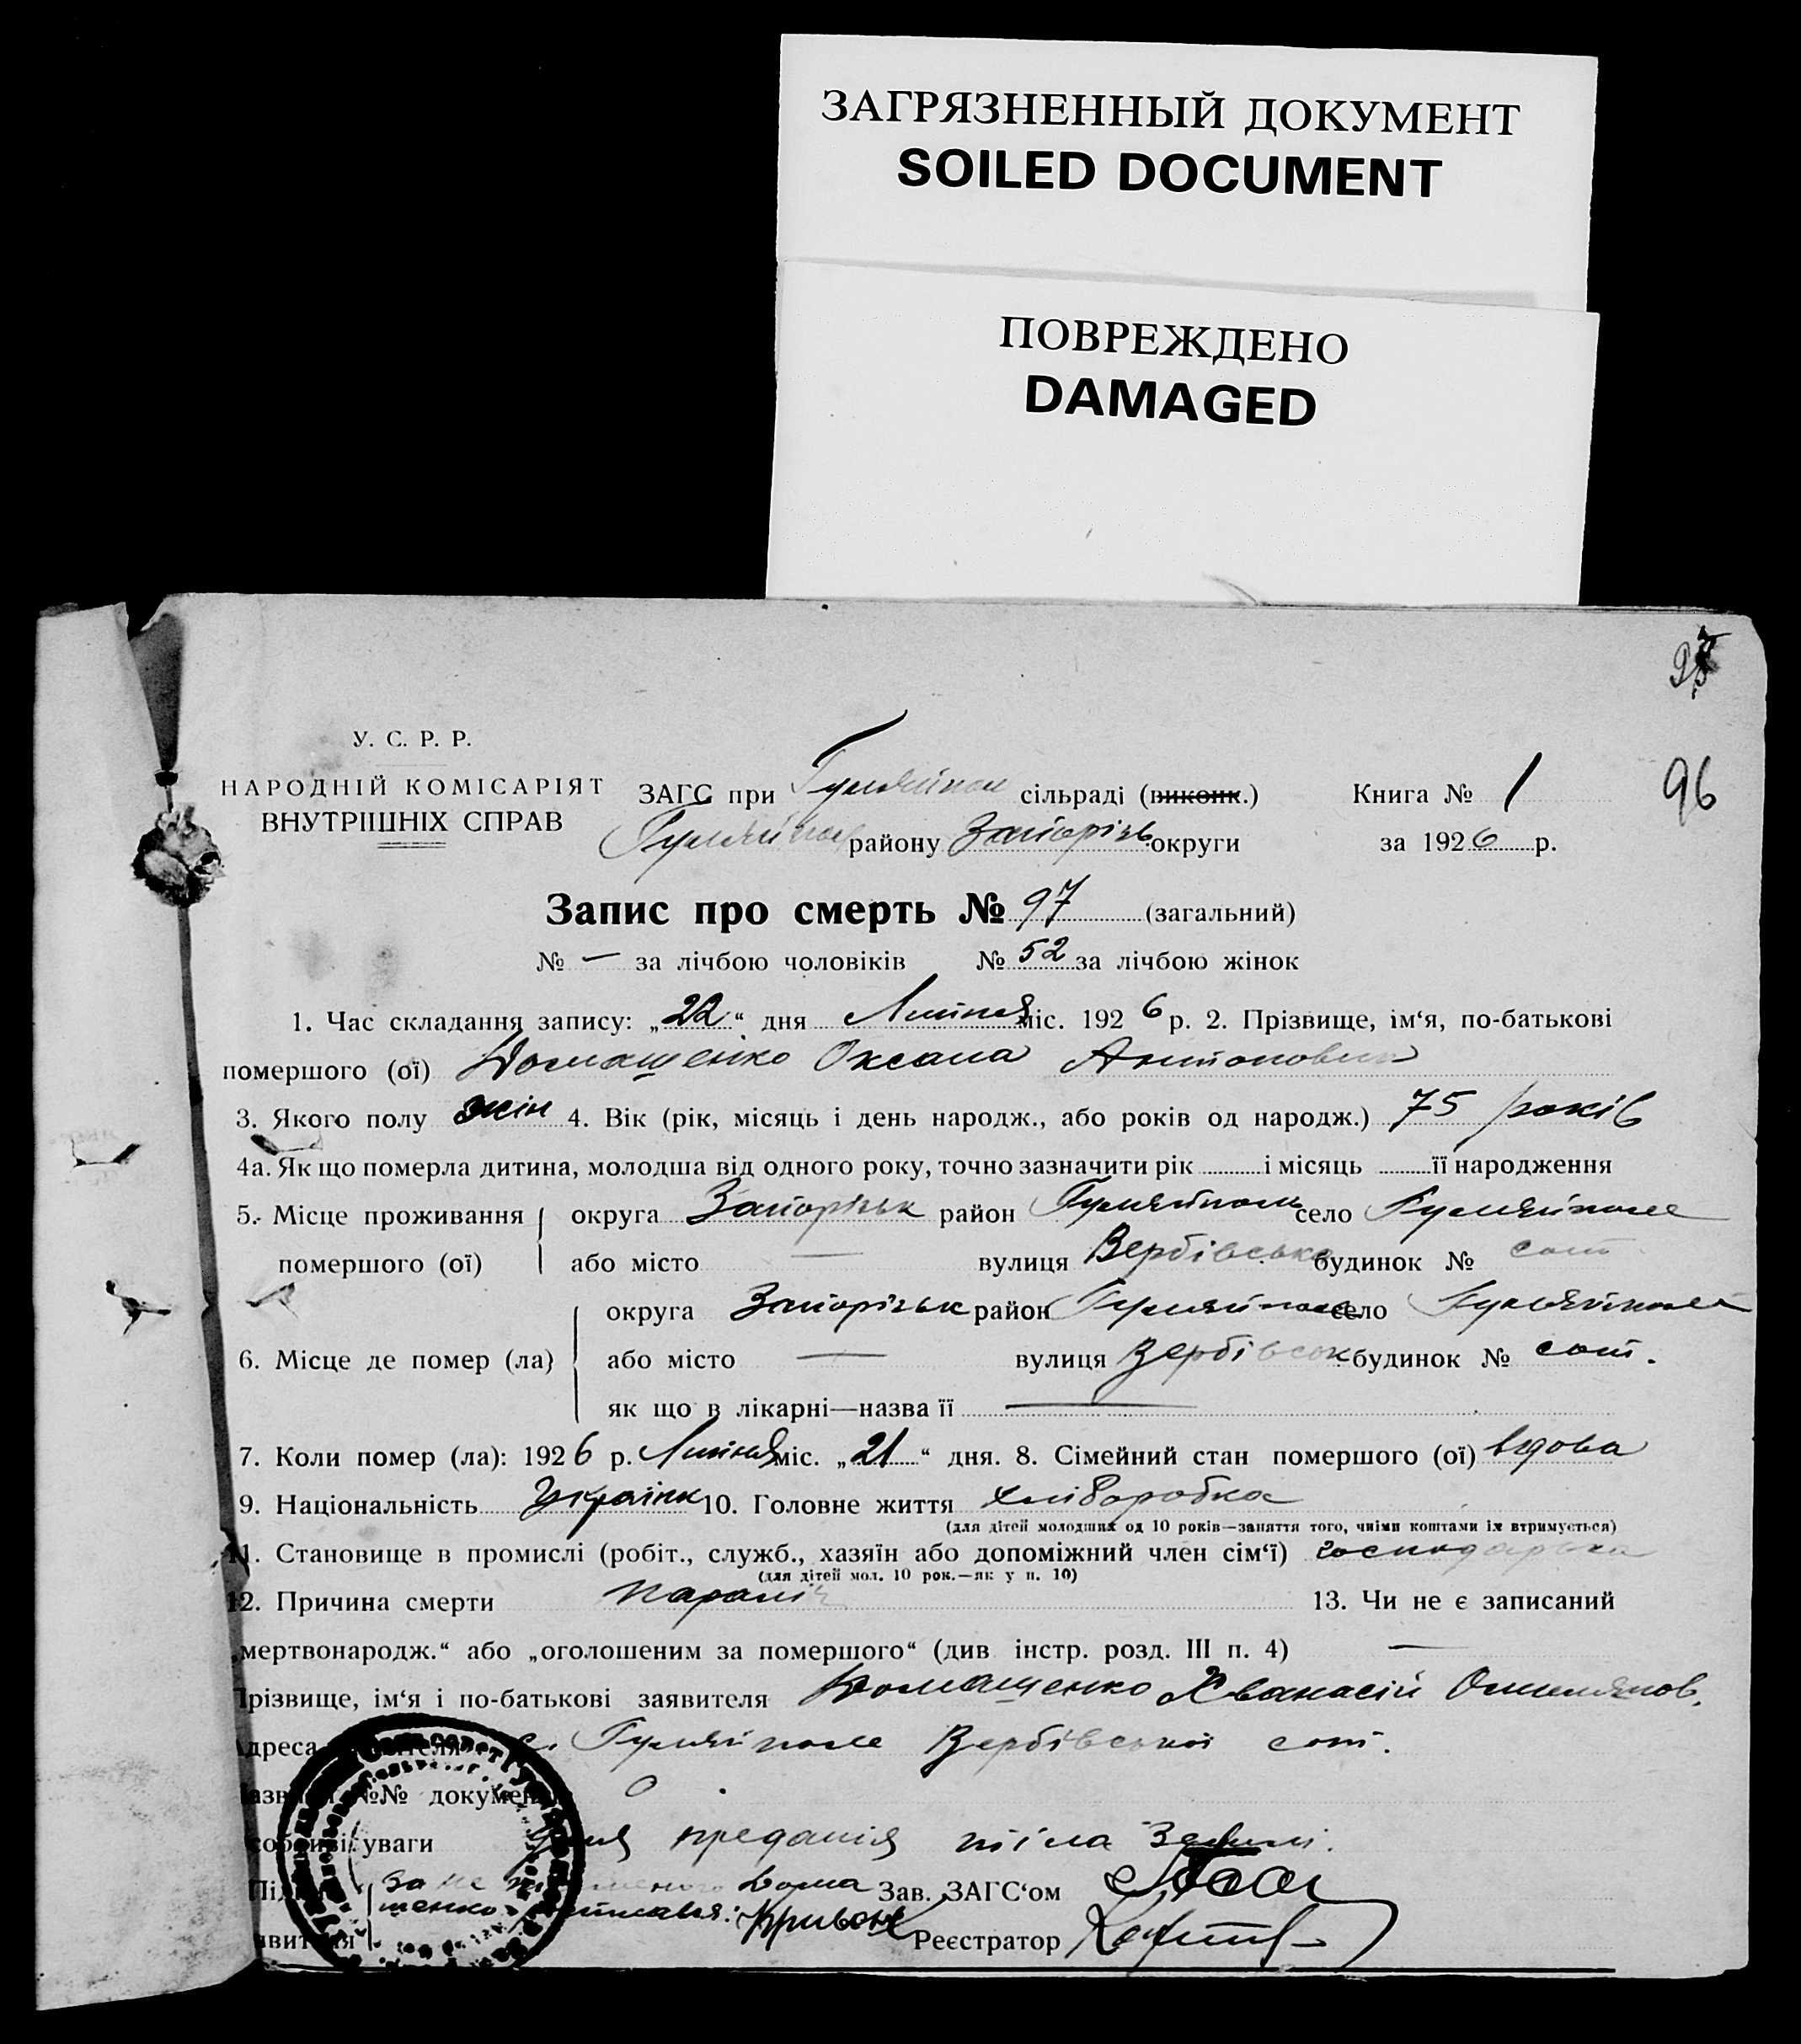 ЗАГРЯЗНЕННЫЙ ДОКУМЕНТ
SOILED DOCUMENT
ПОВРЕЖДЕНО
DAMAGED
96
У. С. Р. Р.
НАРОДНІЙ КОМІСАРІЯТ
ВНУТРІШНІХ СПРАВ
ЗАГС при Гуляйпол сільраді (виконк.) Книга № 1
Гуляйпол району Запорізь округи за 1926 р.
Запис про смерть № 97 (загальний)
№ — за лічбою чоловіків № 52 за лічбою жінок
1. Час складання запису: „22“ дня Липня міс. 1926 р. 2. Прізвище, ім‘я, по-батькові
помершого (ої) Домашенко Оксана Антоновна
3. Якого полу жін 4. Вік (рік, місяць і день народж., або років од народж.) 75 років
4а. Як що померла дитина, молодша від одного року, точно зазначити рік і місяць її народження
5. Місце проживання округа Запорізьк район Гуляйполь село Гуляйполе
помершого (ої) або місто — вулиця Вербівська будинок № сот
округа Запорізьк район Гуляйполе село Гуляйполе
6. Місце де помер (ла) або місто — вулиця Вербівськ будинок № сот.
як що в лікарні—назва її —
7. Коли помер (ла): 1926 р. Липня міс. „21“ дня. 8. Сімейний стан помершого (ої) вдова
9. Національність Українк 10. Головне життя хліборобка
(для дітей молодших од 10 років—заняття того, чиїми коштами їх втримується)
11. Становище в промислі (робіт., служб., хазяїн або допоміжний член сім‘ї) господарька
(для дітей мол. 10 рок.—як у п. 10)
12. Причина смерти параліч 13. Чи не є записаний
„мертвонародж.“ або „оголошеним за помершого“ (див інстр. розд. III п. 4) —
Прізвище, ім‘я і по-батькові заявителя Домашенко Афанасій Омелянов.
Адреса с. Гуляйполе Вербівської сот.
№№ документ
уваги Для предания тіла Землі.
за не Дома Зав. ЗАГС‘ом
шенко Реєстратор